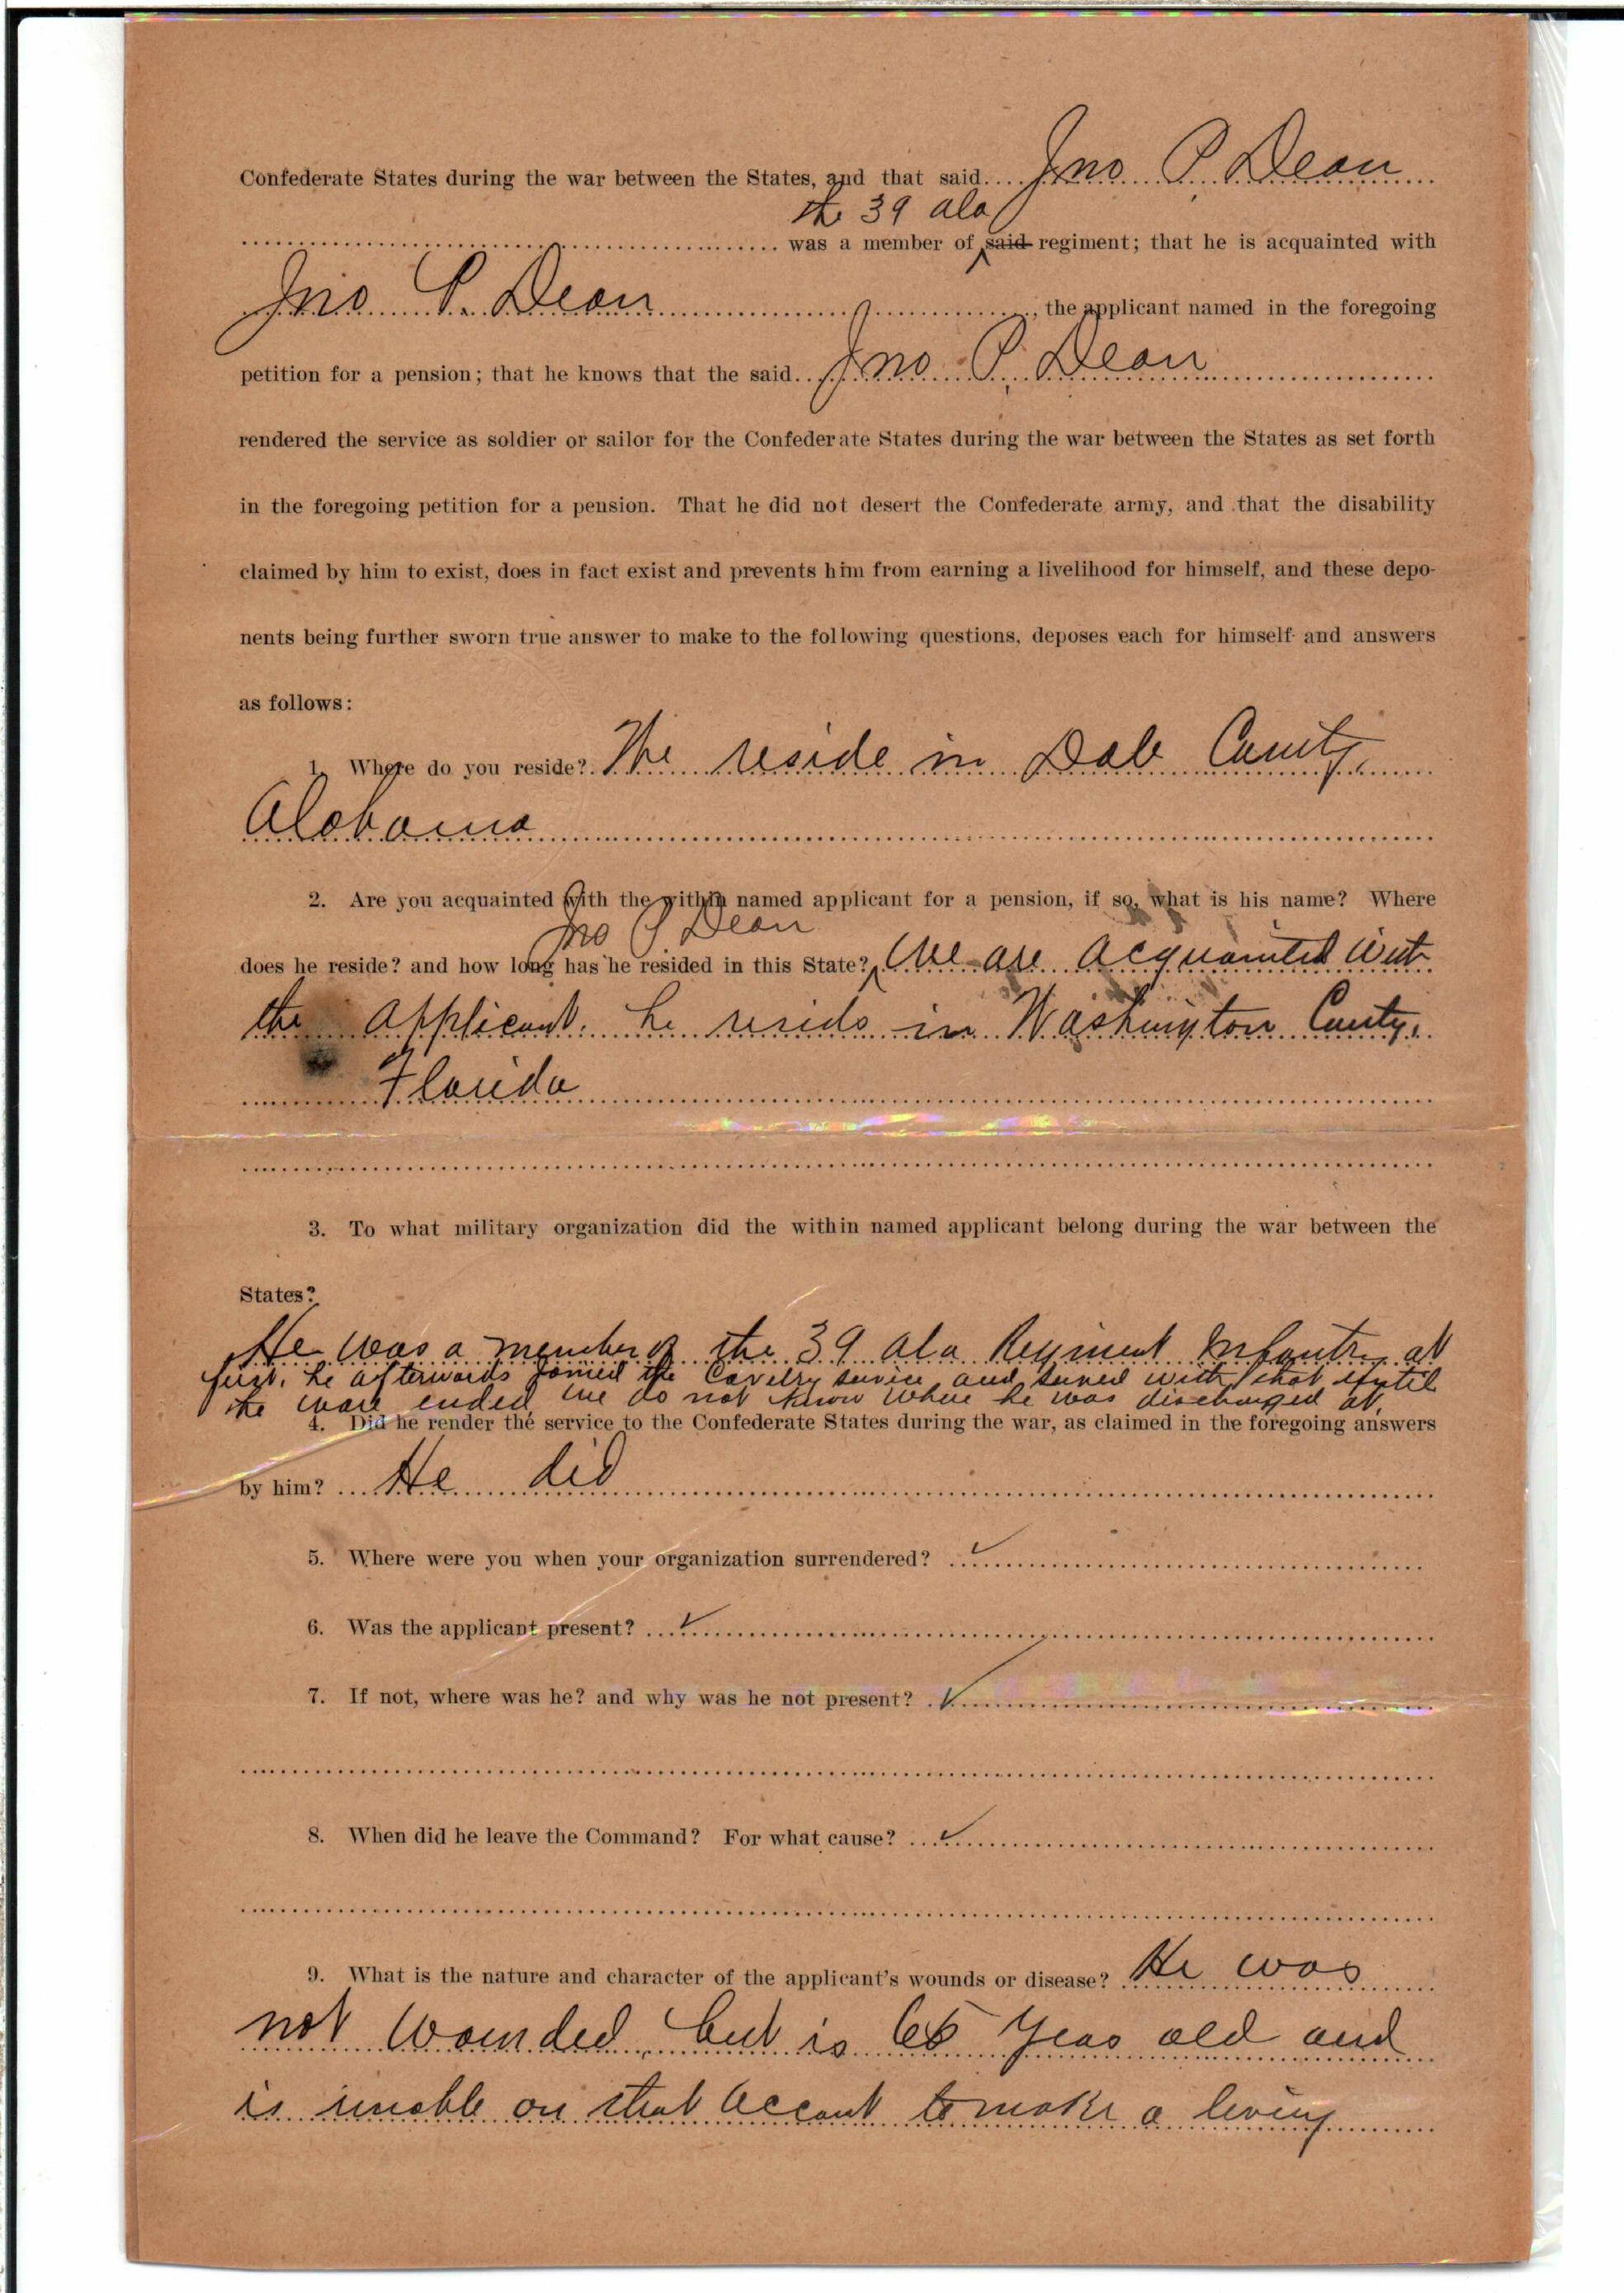 Confederate States during the war between the States, and that said Jno P. Dean
the 39 ala
was a member of said regiment; that he is acquainted with
Jno. P. Dean, the applicant named in the foregoing
petition for a pension; that he knows that the said Jno P. Dean
rendered the service as soldier or sailor for the Confederate States during the war between the States as set forth
in the foregoing petition for a pension. That he did not desert the Confederate army, and that the disability
claimed by him to exist, does in fact exist and prevents him from earning a livelihood for himself, and these depo-
nents being further sworn true answer to make to the following questions, deposes each for himself and answers
as follows:
1. Where do you reside? We reside in Dale County,
Alabama
2. Are you acquainted with the within named applicant for a pension, if so, what is his name? Where
Jno P Dean
does he reside? and how long has he resided in this State? We are acquainted with
the applicant. he resids in Washington County,
Florida
3. To what military organization did the within named applicant belong during the war between the
States?
He was a member of the 39 Ala Regiment Infantry at
first, he afterwards joined the Cavelry service and served with that until
the ware ended, we do not know where he was discharged at,
4. Did he render the service to the Confederate States during the war, as claimed in the foregoing answers
by him? He did
5. Where were you when your organization surrendered? ✓
6. Was the applicant present? ✓
7. If not, where was he? and why was he not present? ✓
8. When did he leave the Command? For what cause? ✓
9. What is the nature and character of the applicant's wounds or disease? He was
not wounded, but is years old and
is unable on that account to make a living